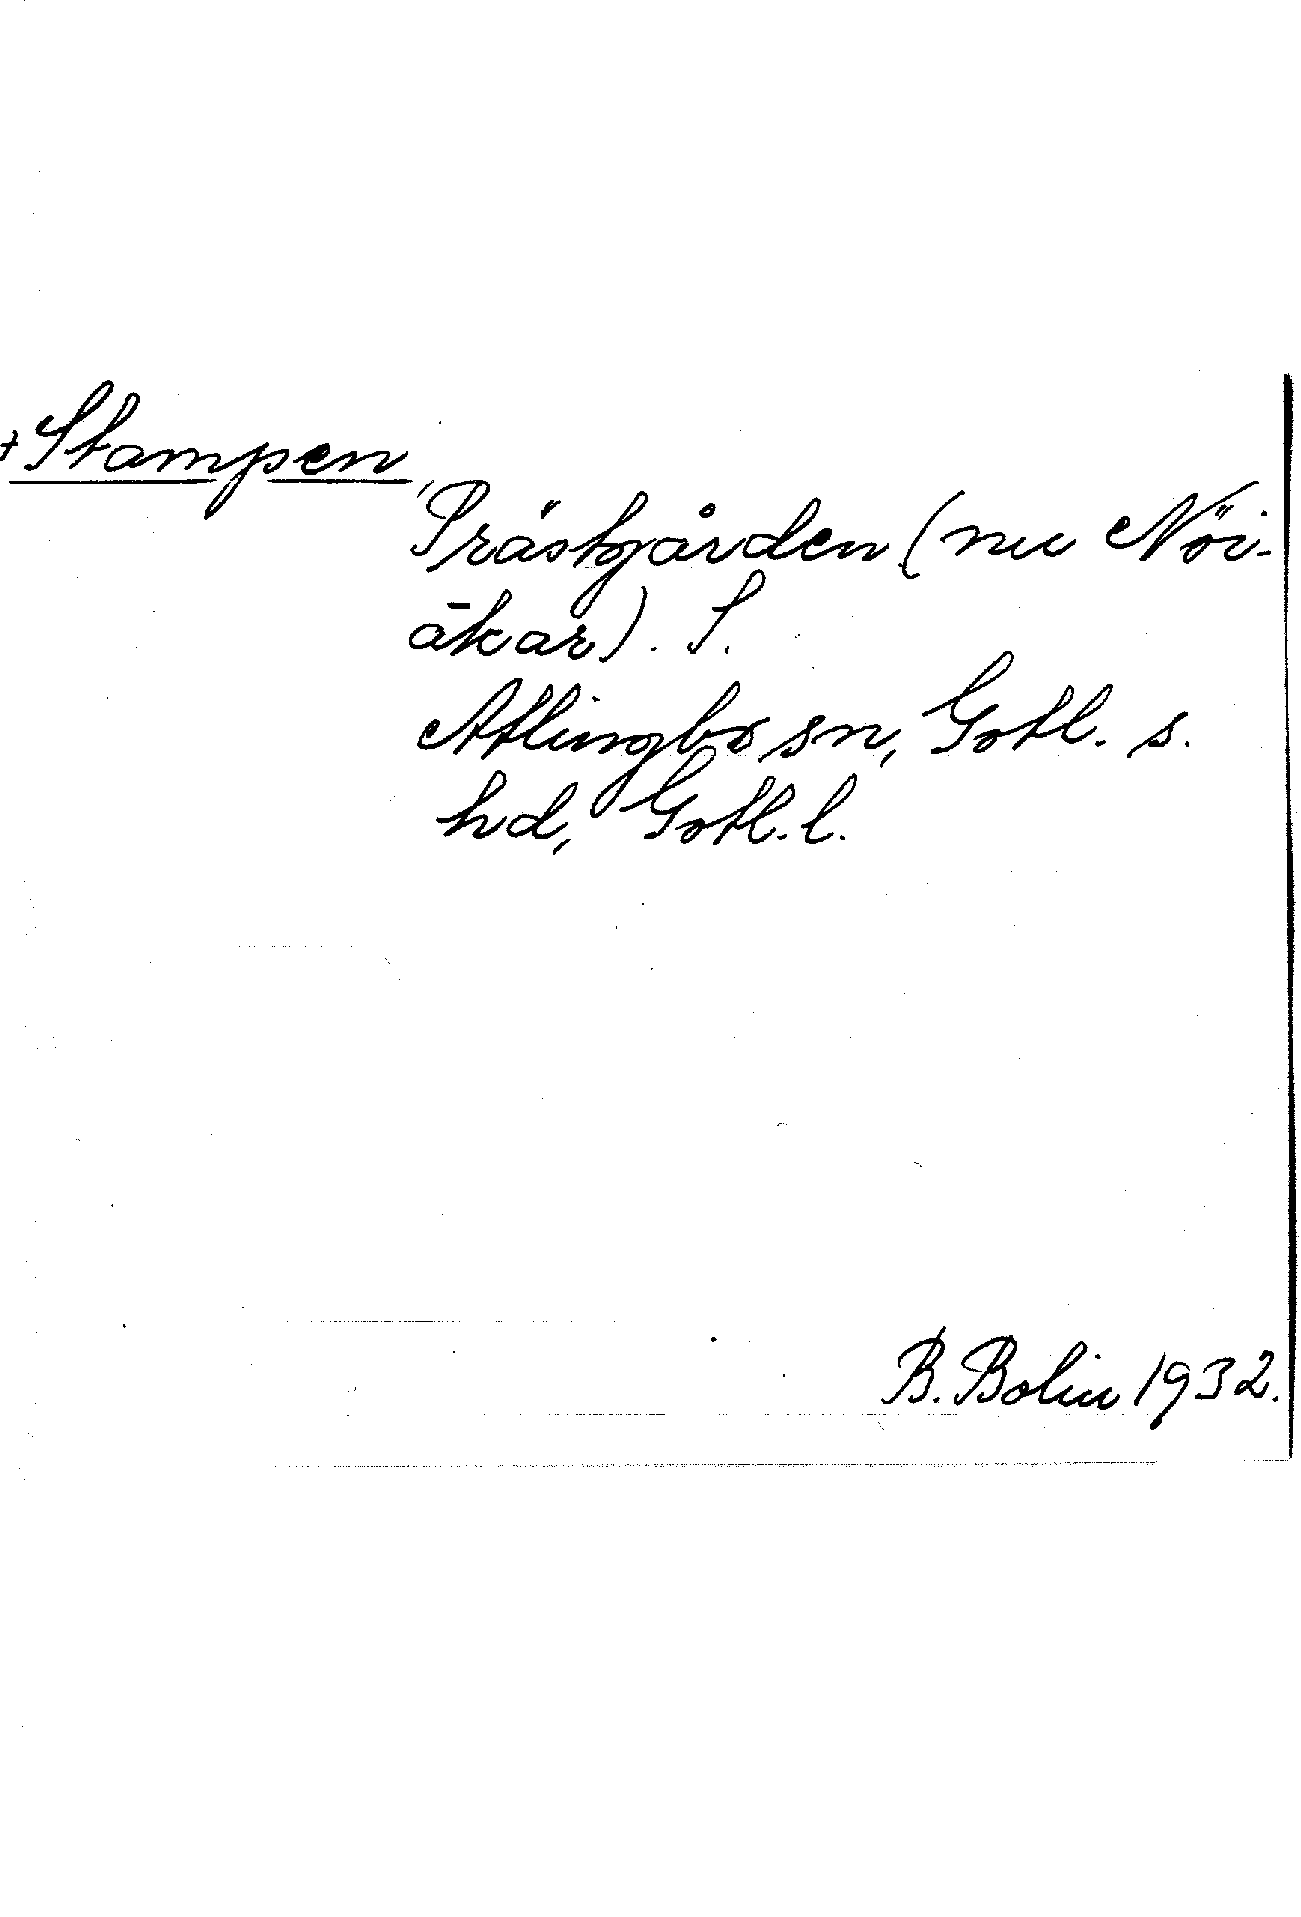 +Stampen,
Prästgården (nu Nöi-
ākar). S.
Atlingbo sn, Gotl. s.
hd, Gotl. l.
B. Bolin 1932.